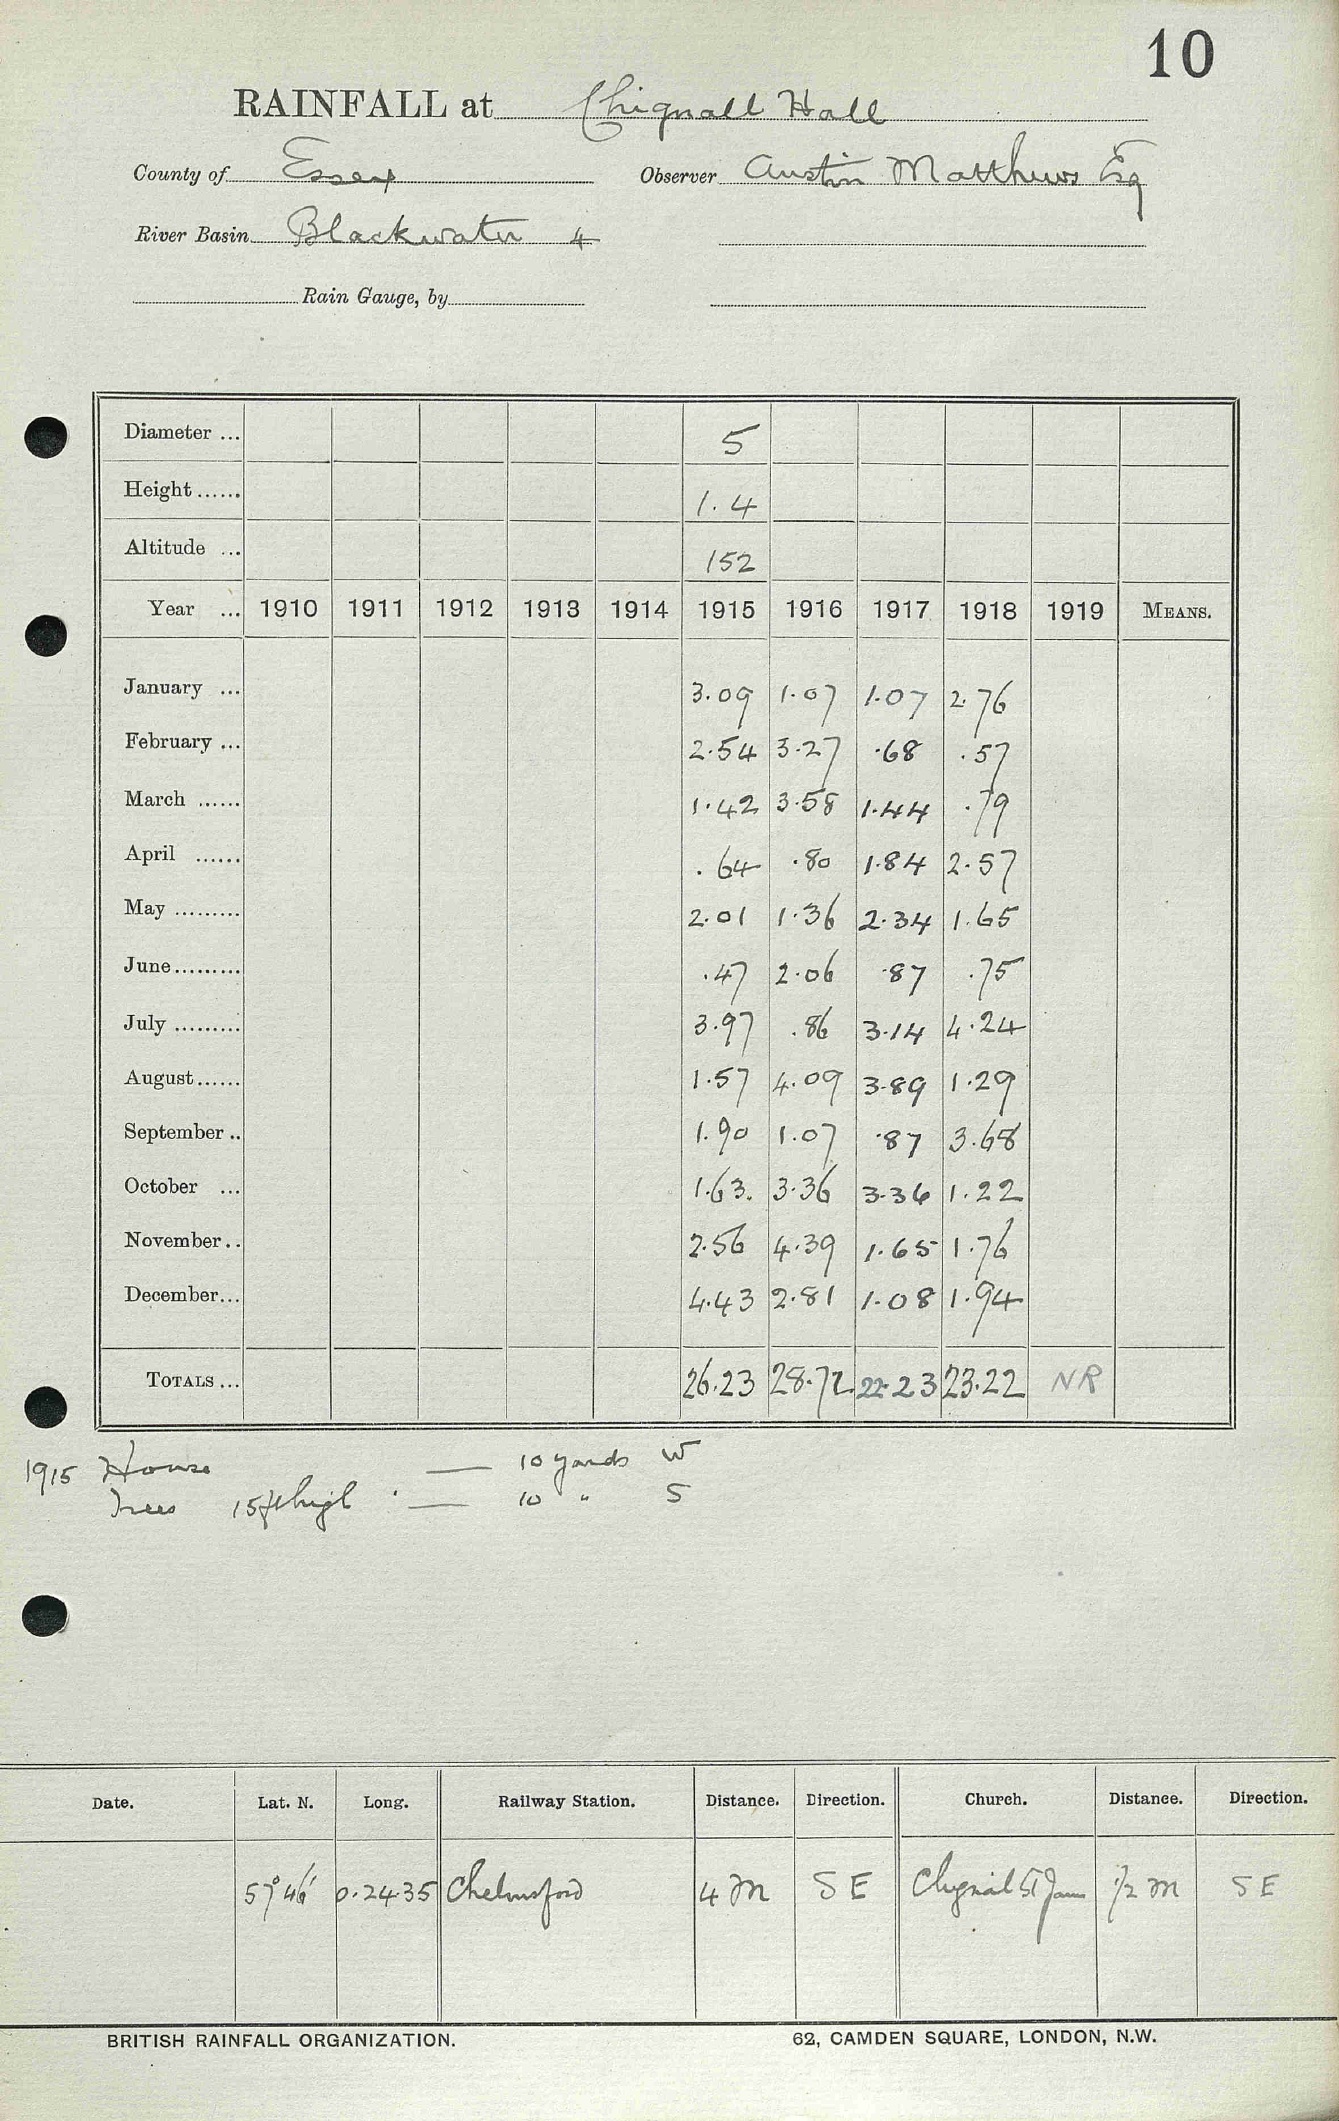 10
RAINFALL at Chignall Hall
County of Essex Observer Austin Matthews Esq
River Basin Blackwater 4
Rain Gauge, by
Diameter ... 5
Height...... 1.4
Altitude ... 152
Year ... 1910 1911 1912 1913 1914 1915 1916 1917 1918 1919 MEANS.
January ... 3.09 1.07 1.07 2.76
February ... 2.54 3.27 .68 .57
March ...... 1.42 3.58 1.44 .79
April ...... .64 .80 1.84 2.57
May ......... 2.01 1.36 2.34 1.65
June......... .47 2.06 .87 .75
July ......... 3.97 .86 3.14 4.24
August...... 1.57 4.09 3.89 1.29
September .. 1.90 1.07 .87 3.68
October ... 1.63. 3.36 3.36 1.22
November .. 2.56 4.39 1.65 1.76
December... 4.43 2.81 1.08 1.94
TOTALS ... 26.23 28.72 22.23 23.22 NR
1915 House — 10 yards W
Trees 15ft high — 10 " S
Date. Lat. N. Long. Railway Station. Distance. Direction. Church. Distance. Direction.
51° 46' 0.24.35 Chelmsford 4 M SE Chignal St James 1/2 M SE
BRITISH RAINFALL ORGANIZATION. 62, CAMDEN SQUARE, LONDON, N.W.